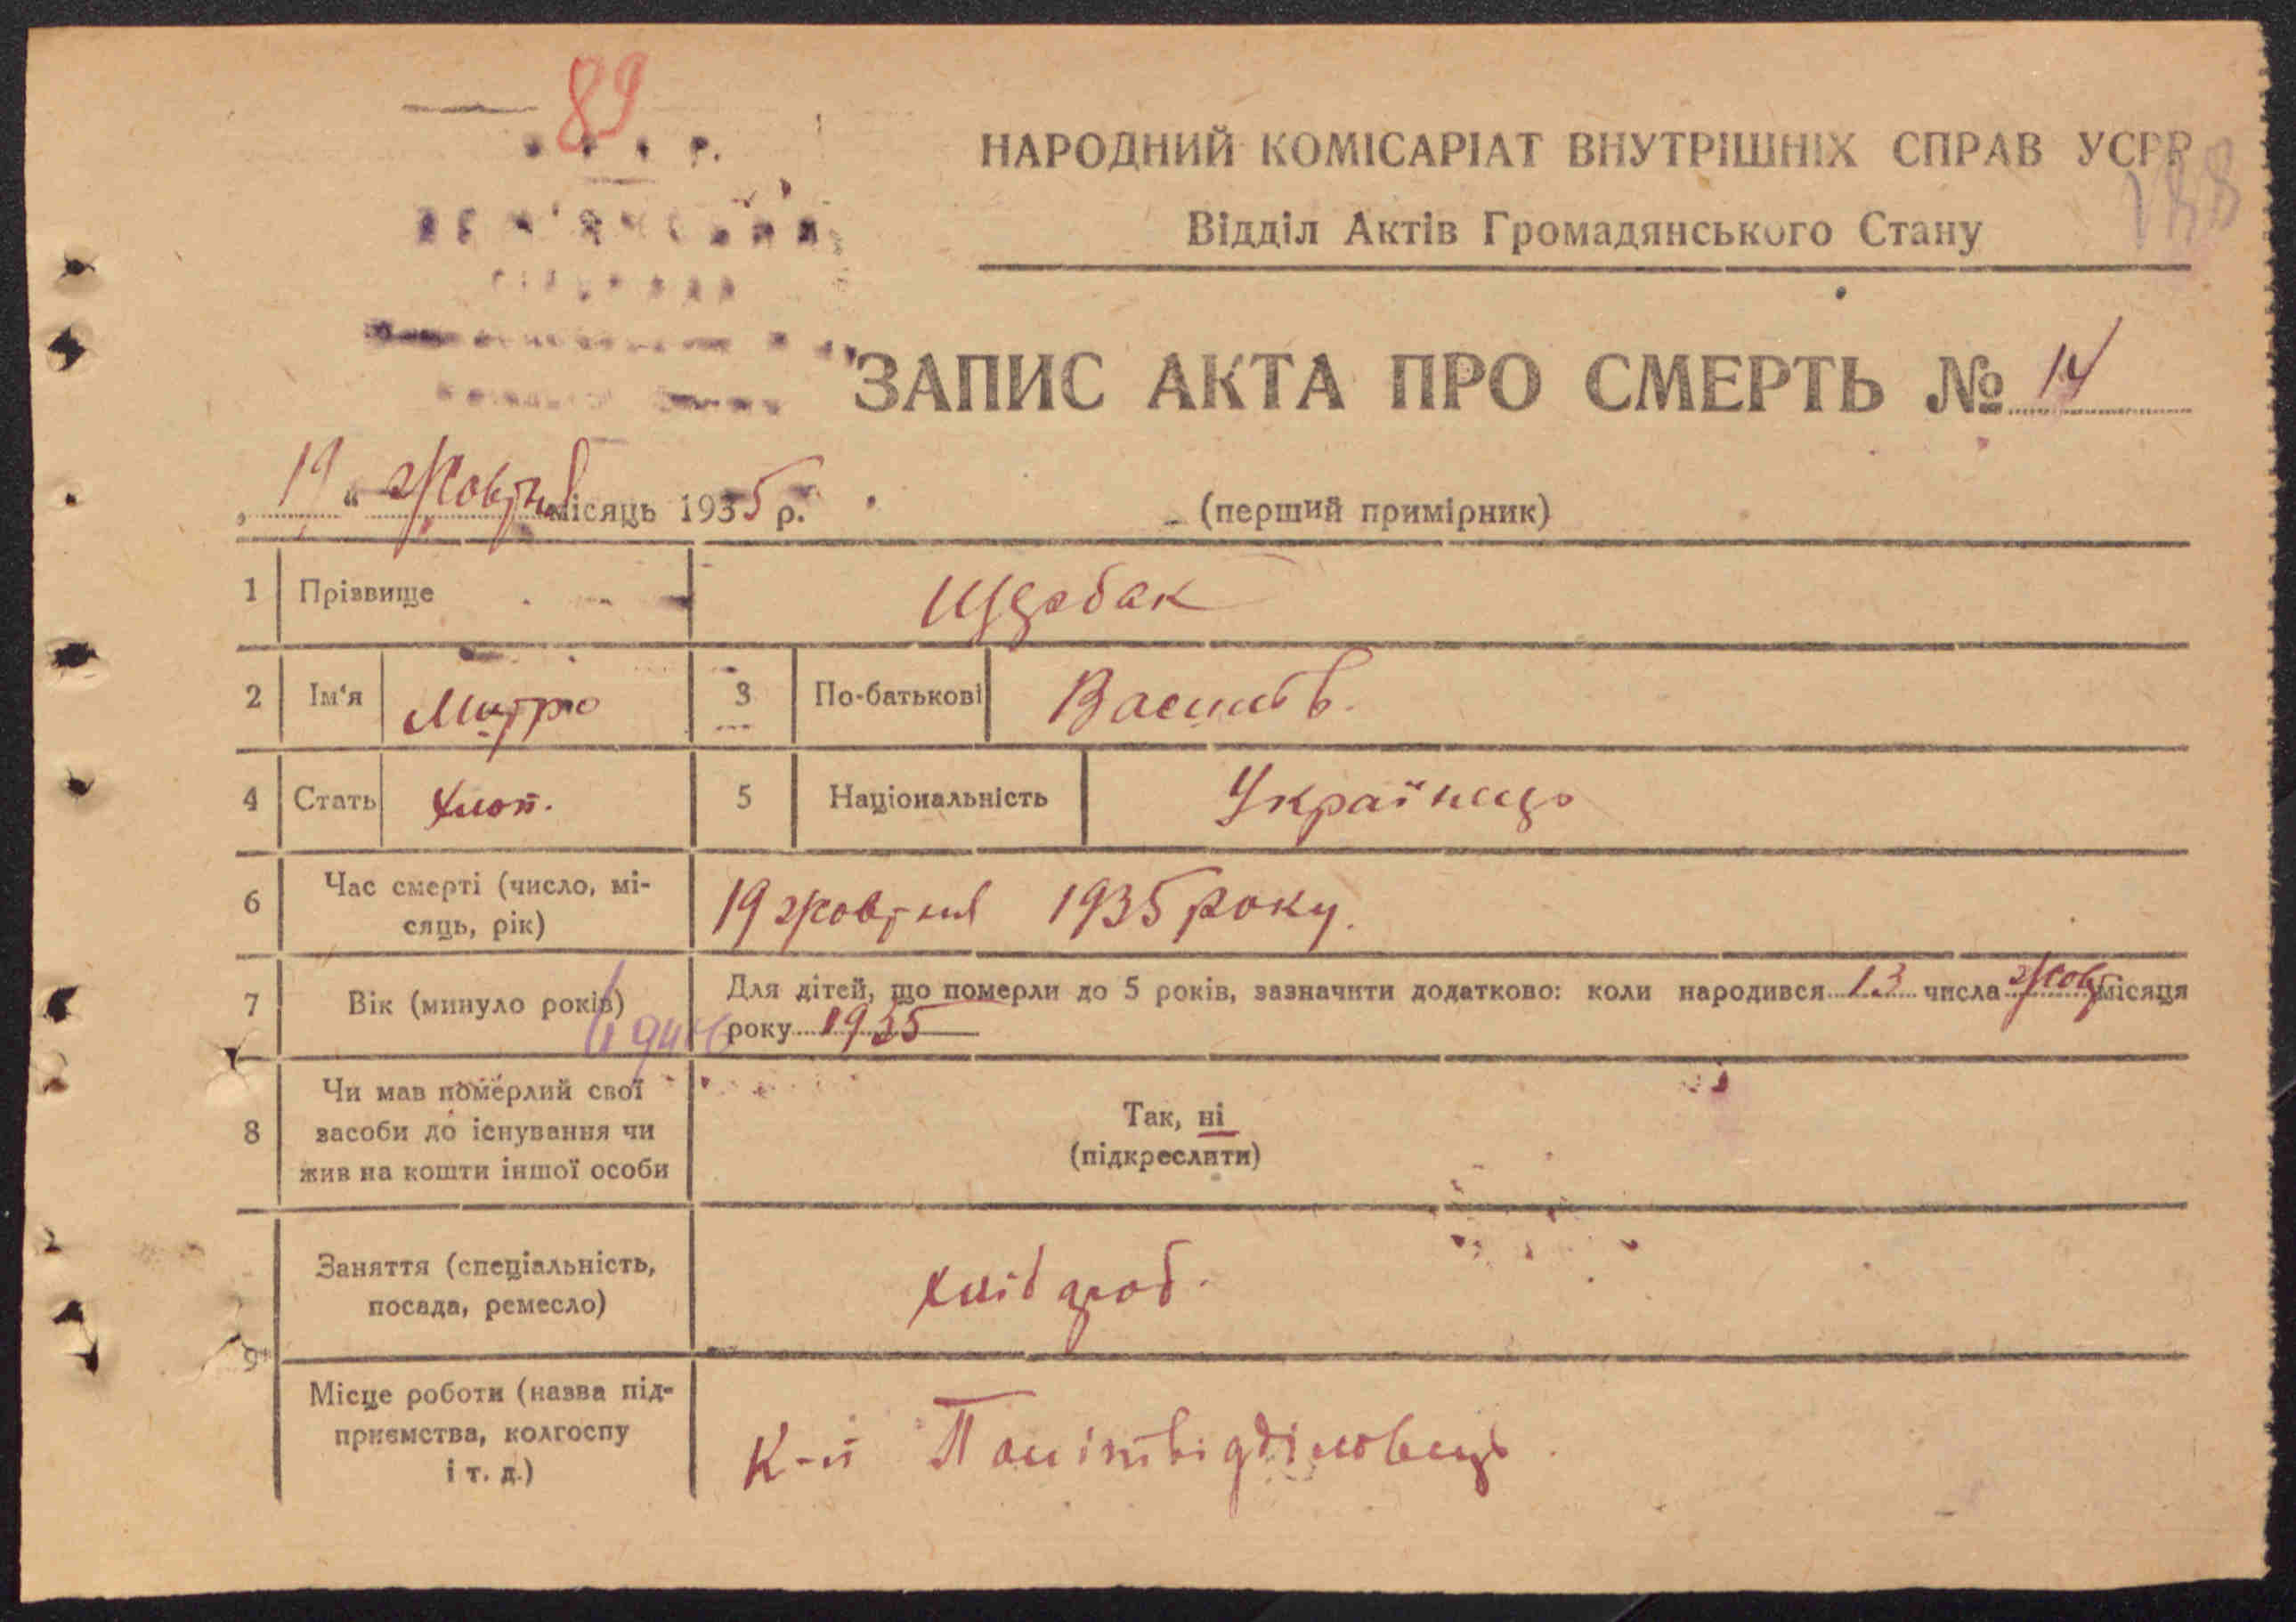 89
НАРОДНИЙ КОМІСАРІАТ ВНУТРІШНІХ СПРАВ УСРР
188
Відділ Актів Громадянського Стану
ЗАПИС АКТА ПРО СМЕРТЬ № 14
„ 19 “ жовтня місяць 1935 р.
(перший примірник)
1 Прізвище
2 Ім'я Митро 3 По-батькові Василів.
4 Стать хлоп. 5 Національність Українець
6 Час смерті (число, мі-
сяць, рік) 19 жовтня 1935 року.
7 Вік (минуло років) Для дітей, що померли до 5 років, зазначити додатково: коли народився 13 числа жовт місяця
року 1935
8 Чи мав померлий свої
засоби до існування чи
жив на кошти іншої особи
Так, ні
(підкреслити)
9 Заняття (спеціальність,
посада, ремесло) хлібороб.
Місце роботи (назва під-
приємства, колгоспу
і т. д.) К-п Политвідділовець